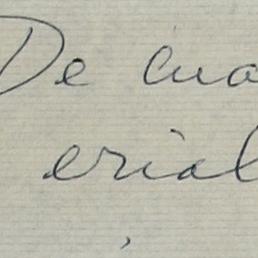 De cua
erial